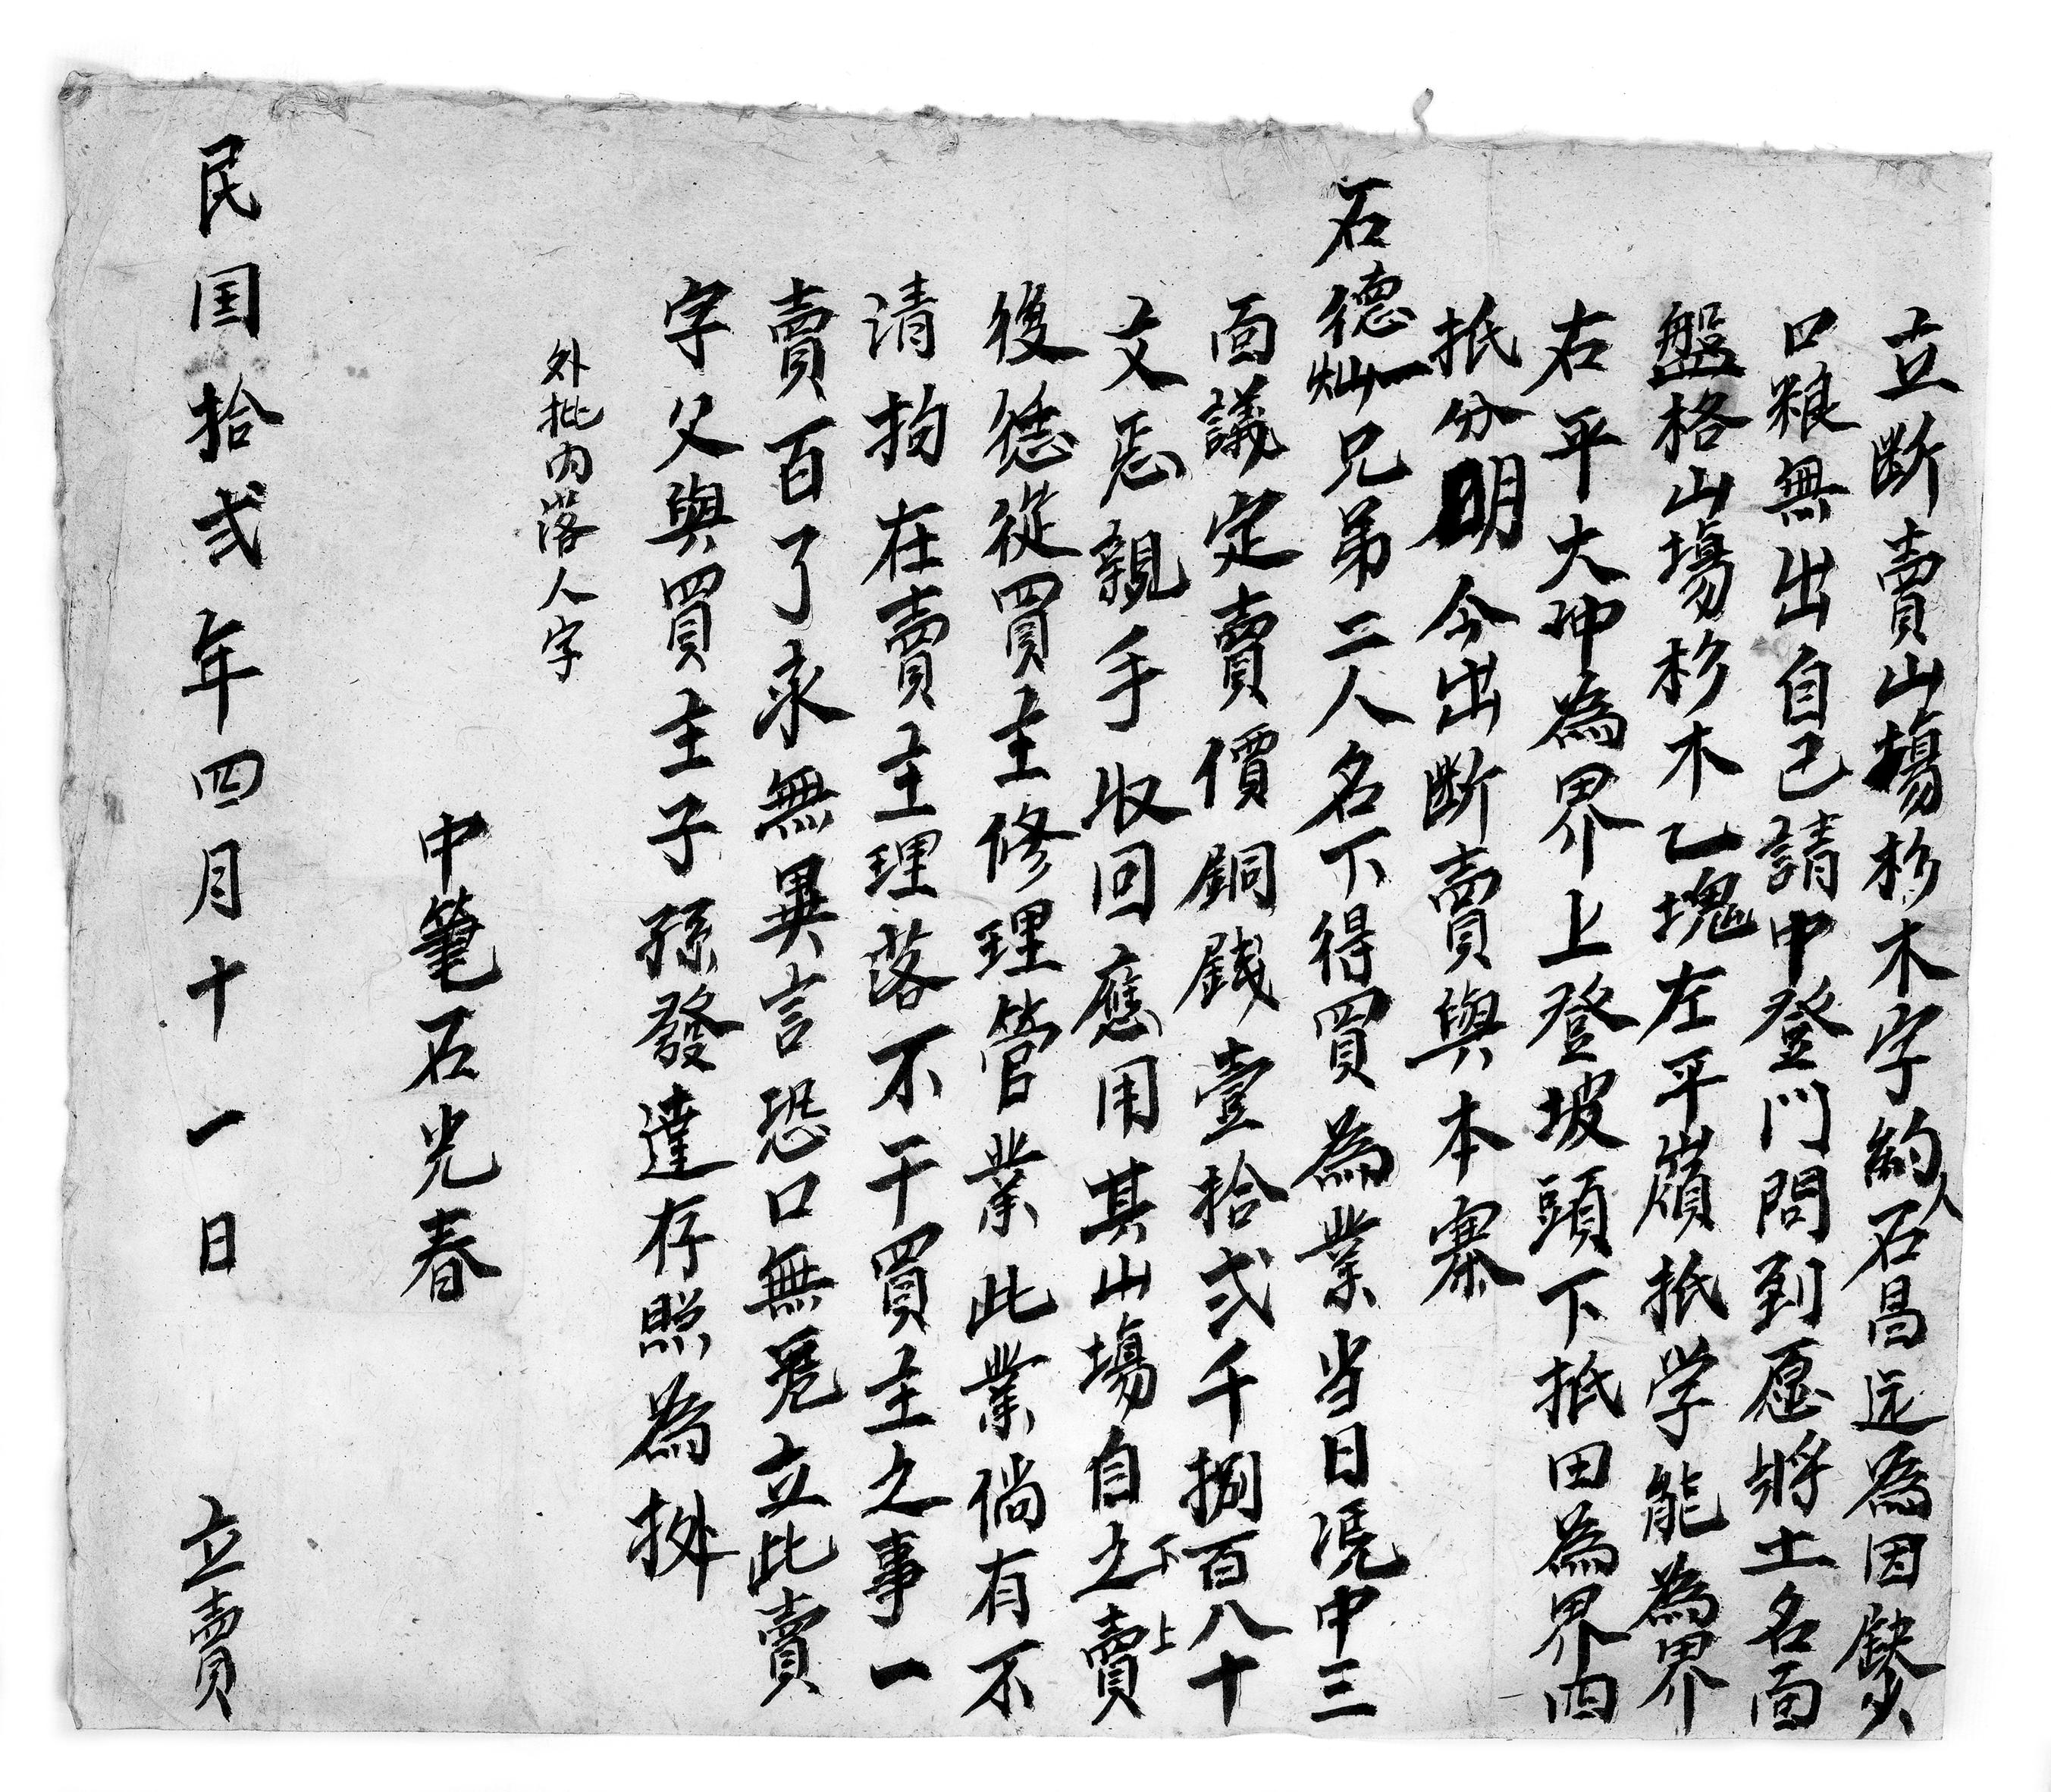 立断賣山塲杉木字約人石昌远為因缺少
口粮無出自己請中登門問到愿將土名面
盤格山塲杉木乙塊左平嶺抵学能為界
右平大冲為界上登坡頭下抵田為界四
抵分明今出断賣與本寨
石德灿一兄弟二人名下得買為業当日凴中三
面議定賣價銅錢壹拾弍千捌百八十
文恁親手收回應用其山塲自之下賣上
後恁從買主修理管業此業倘有不
清拘在賣主理落不干買主之事一
賣百了永無異言恐口無凭立此賣
字父與買主子孫發達存照為㨿
外批内落人字
中筆石光春
民国拾弍年四月十一日 立賣